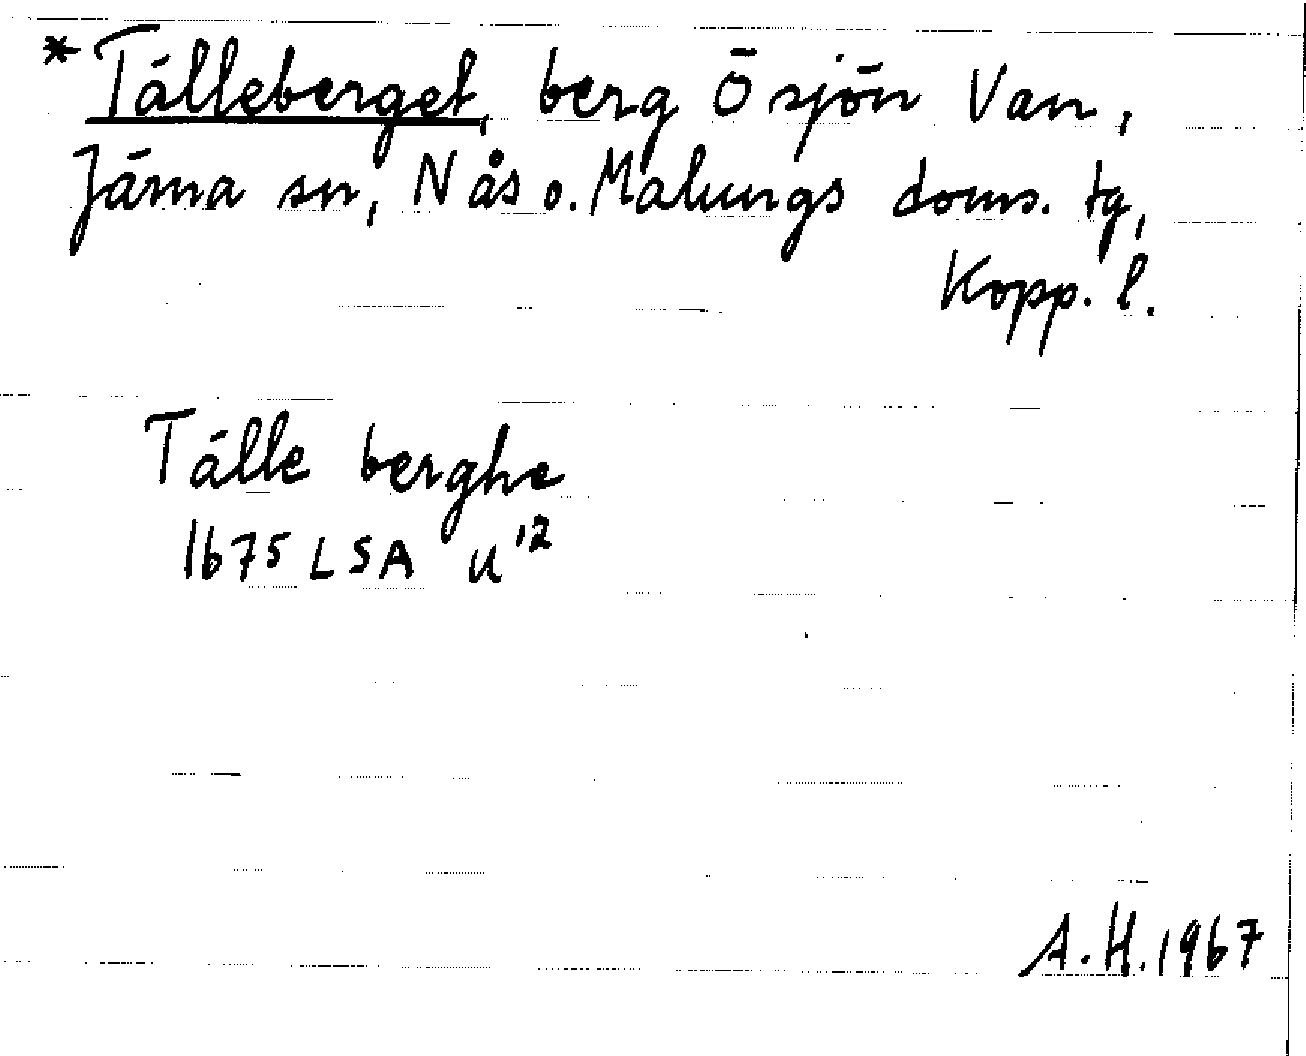 * Tälleberget, berg Ö sjön Van,
Järna sn, Nås o. Malungs doms. tg,
Kopp. l.
Tälle berghe
1675 LSA U'2
A.H. 1967